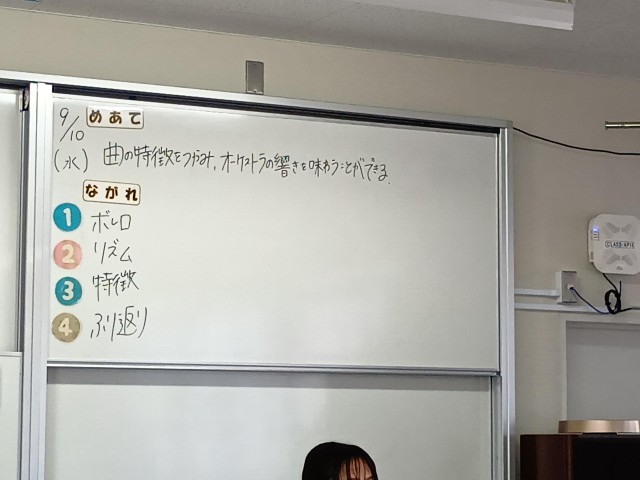 9/10 めあて
(水) 曲の特徴をつかみ、オーケストラの響きを味わうことができる。
ながれ
1 ボレロ
2 リズム
3 特徴
4 ふり返り
CLASS-AP16